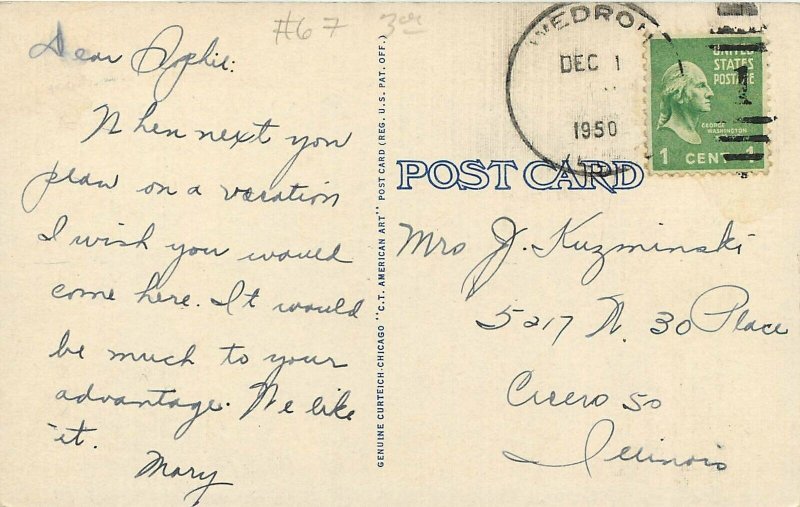 #67 3cr
Dear Sophie:
When next you
plan on a vacation
I wish you would
come here. It would
be much to your
advantage. We like
it.
Mary
GENUINE CURTEICH-CHICAGO "C.T. AMERICAN ART" POST CARD (REG. U.S. PAT. OFF.)
WEDRON
DEC 1
1950
UNITED
STATES
POSTAGE
GEORGE
WASHINGTON
1 CENT 1
POST CARD
Mrs J. Kuzminski
5217 W. 30 Place
Cicero 50
Illinois